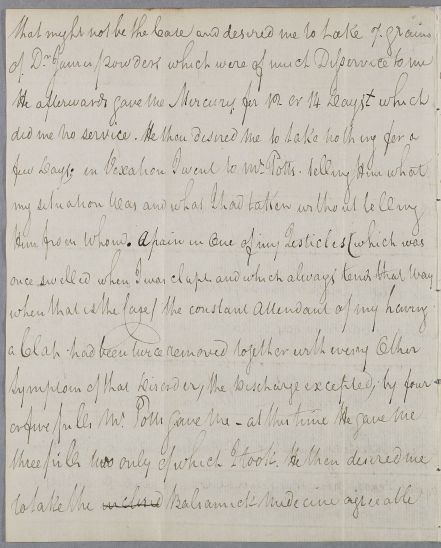 that might not be the Case and desired me to take 7 grains
of Dr. James powders which were of much Disservice to me
He afterwards gave me Mercury for 12 or 14 Days which
did me no service. He then desired me to take nothing for a
few Days. in Vexation I went to Mr. Potts. telling Him what
my situation was and what I had taken without telling
Him from whom. A pain in one of my Testicles (which was
once swelled when I was clapt and which always tends that way
when that is the Case) the constant Attendant of my having
a Clap had been twice removed together with every Other
symptom of that Disorder, the Discharge excepted, by four
or five pills Mr. Potts gave me - at this time He gave me
three pills two only of which I took. He then desired me
to take the inclosed Balsamick Medicine agreeable